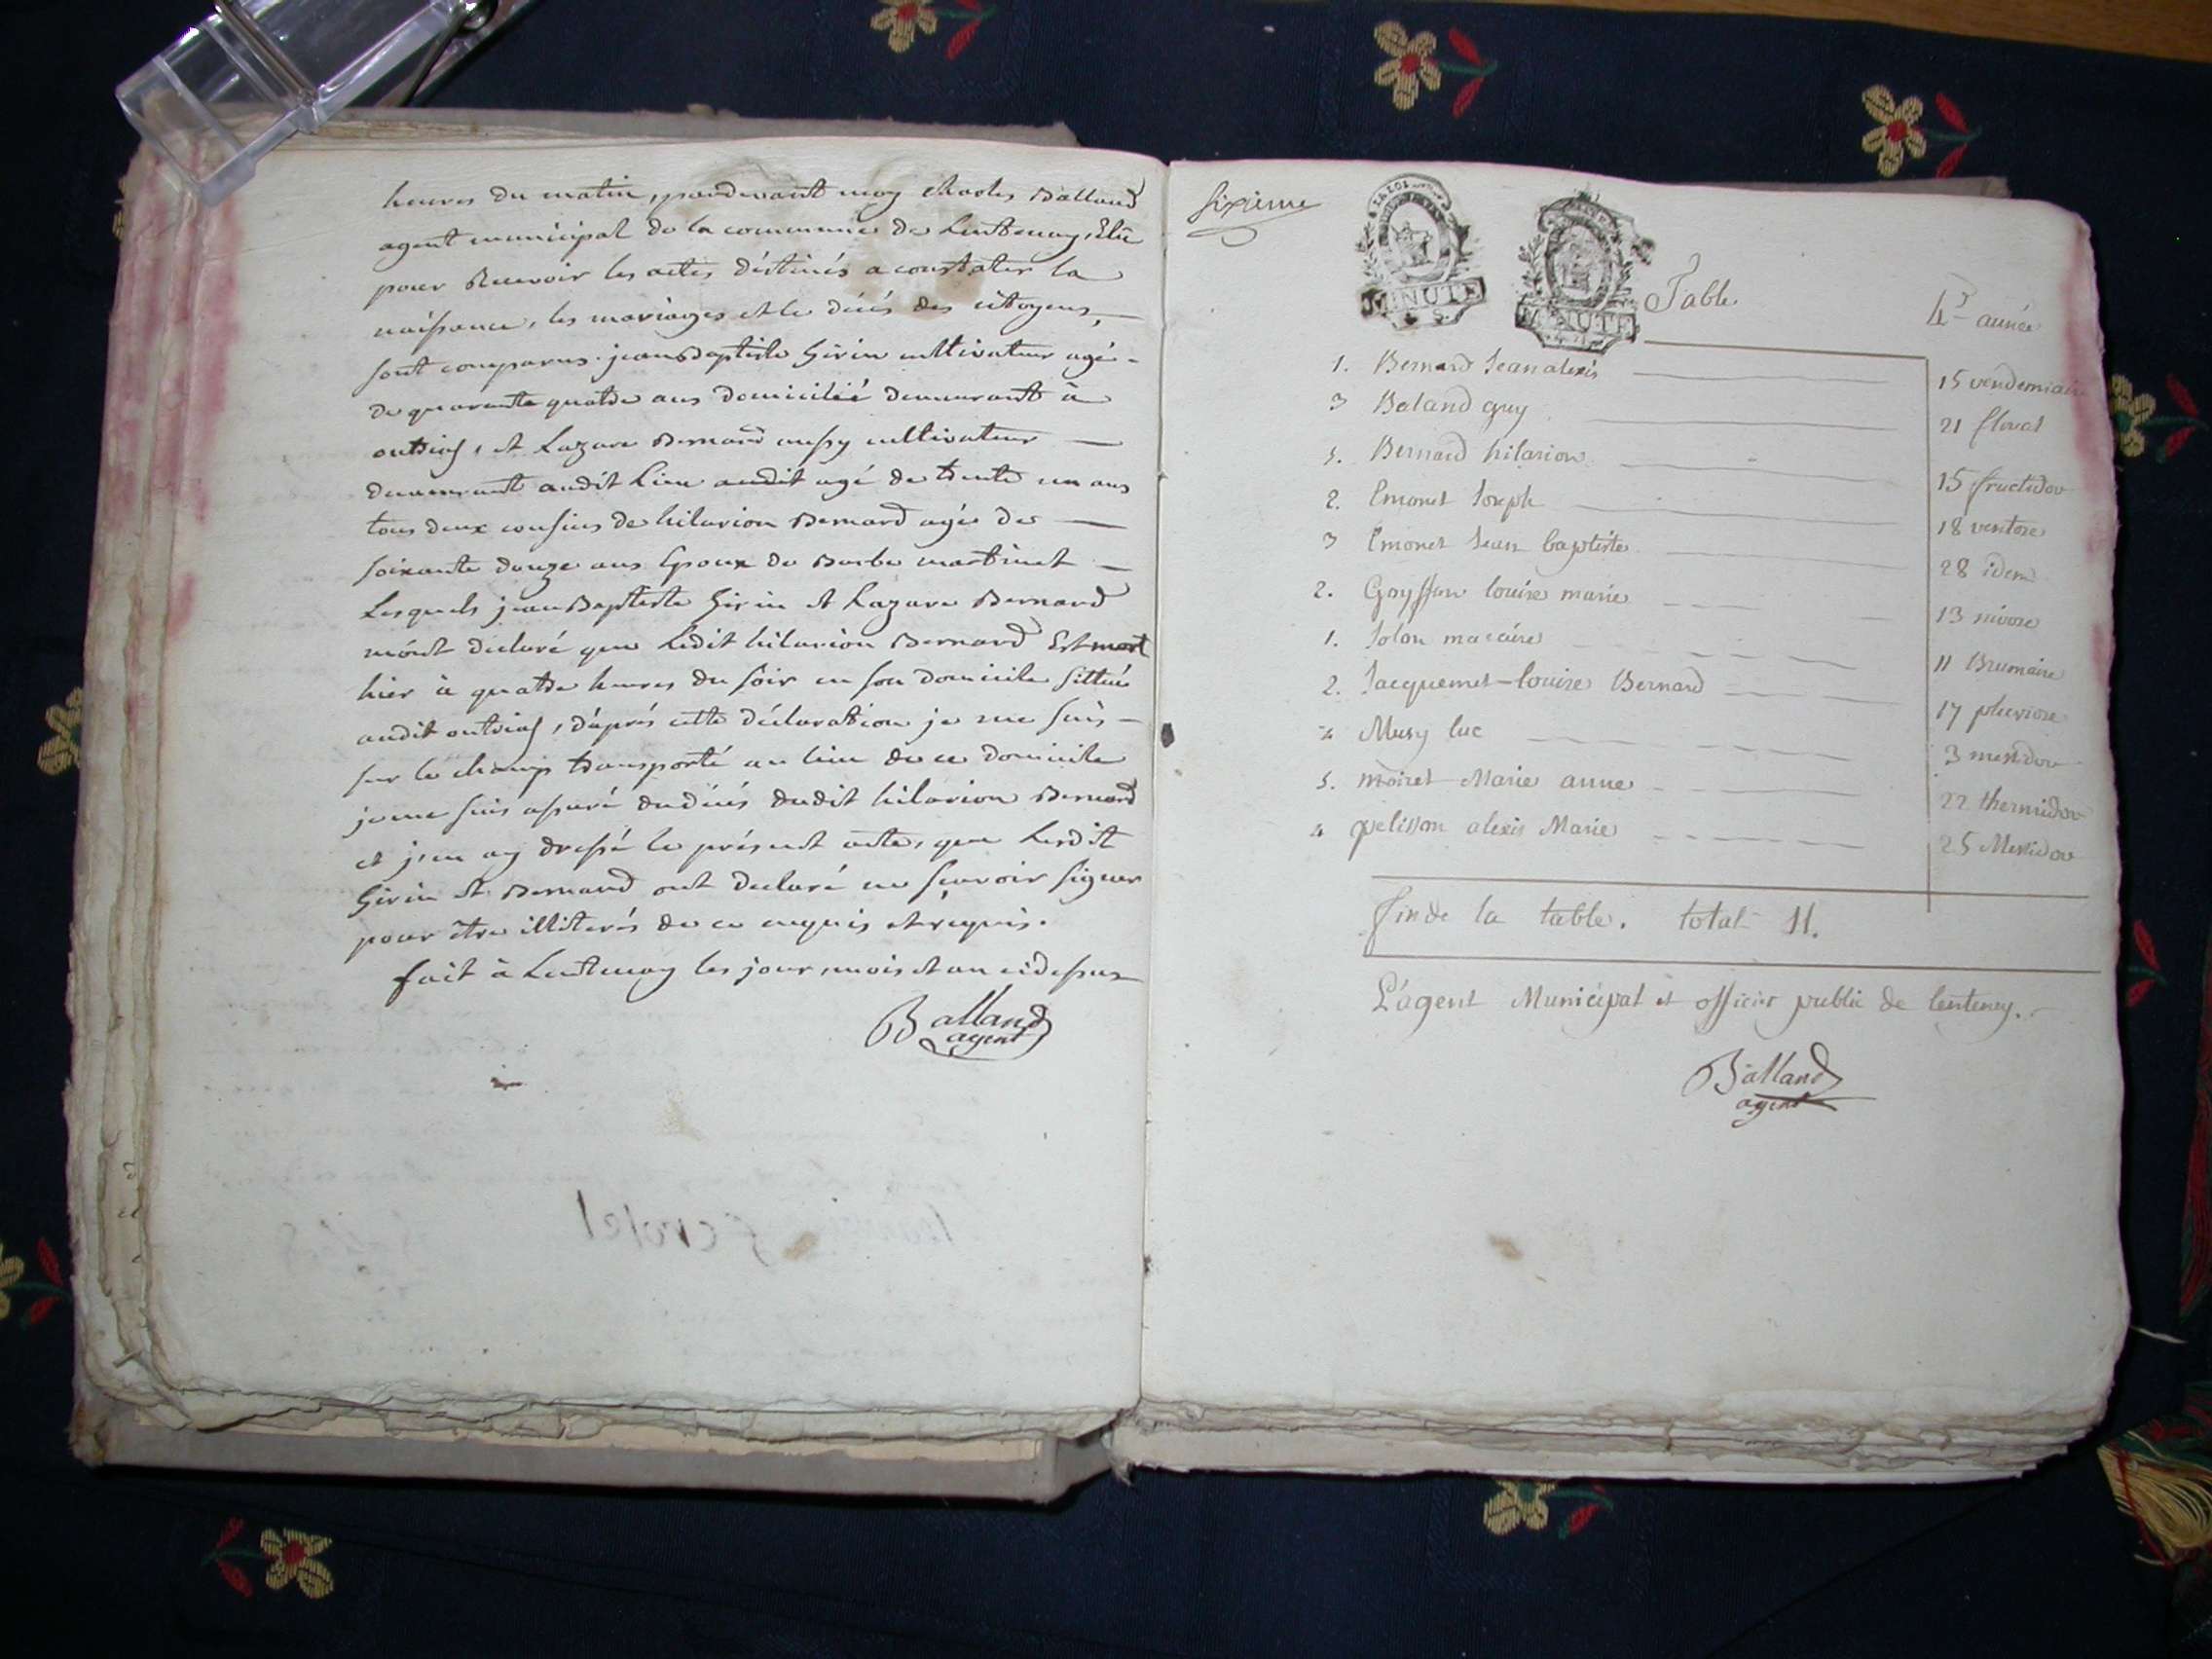 heures du matin, pardevant moy Charles Balland
agent municipal de la commune de Lentenay, Elû
pour Recevoir les actes déstinés a constater la
naissance, les mariages et le décés des citoyens,
sont comparus jean Baptiste Girin cultivateur agé
de quarante quatre ans domicilié demeurant à
outriaz, et Lazare Bernard aussy cultivateur
demeurant audit Lieu audit agé de trente un ans
tous deux cousins de hilarion Bernard agée de
soixante douze ans Epoux de Barbe martinet
Lesquels jean Baptiste Girin et Lazare Bernard
m'ont declaré que Ledit hilarion Bernard Est mort
hier à quatre heures du soir en son domicile sittué
audit outriaz, d'aprés cette déclaration je me suis
sur le champ transporté au lieu de ce domicile
je me suis assuré du décés dudit hilarion Bernard
et j'en ay dressé le présent acte, que Lesdit
Girin et Bernard ont declaré ne sçavoir signer
pour être illiterés de ce enquis et requis.
fait à Lentenay les jour, mois et an cidessus
Balland
agent
sixieme
LA LOI
MINUTE
MINUTE
Table
4e année
1. Bernard Jean alexis 15 vendemiaire
3 Baland guy 21 floreal
5. Bernard hilarion 15 fructidor
2. Emonet Joseph 18 ventose
3 Emonet Jean baptiste 28 idem
2. louise marie 13 nivose
1. Jolon 11 Brumaire
2. Jacquemet louise Bernard 17 pluviose
4 Musy luc 3 messidor
5. moiret Marie anne 22 thermidor
4 pelisson alexis Marie 25 Messidor
fin de la table. total 11.
L'agent Municipal et officier public de lentenay.
Balland
agent